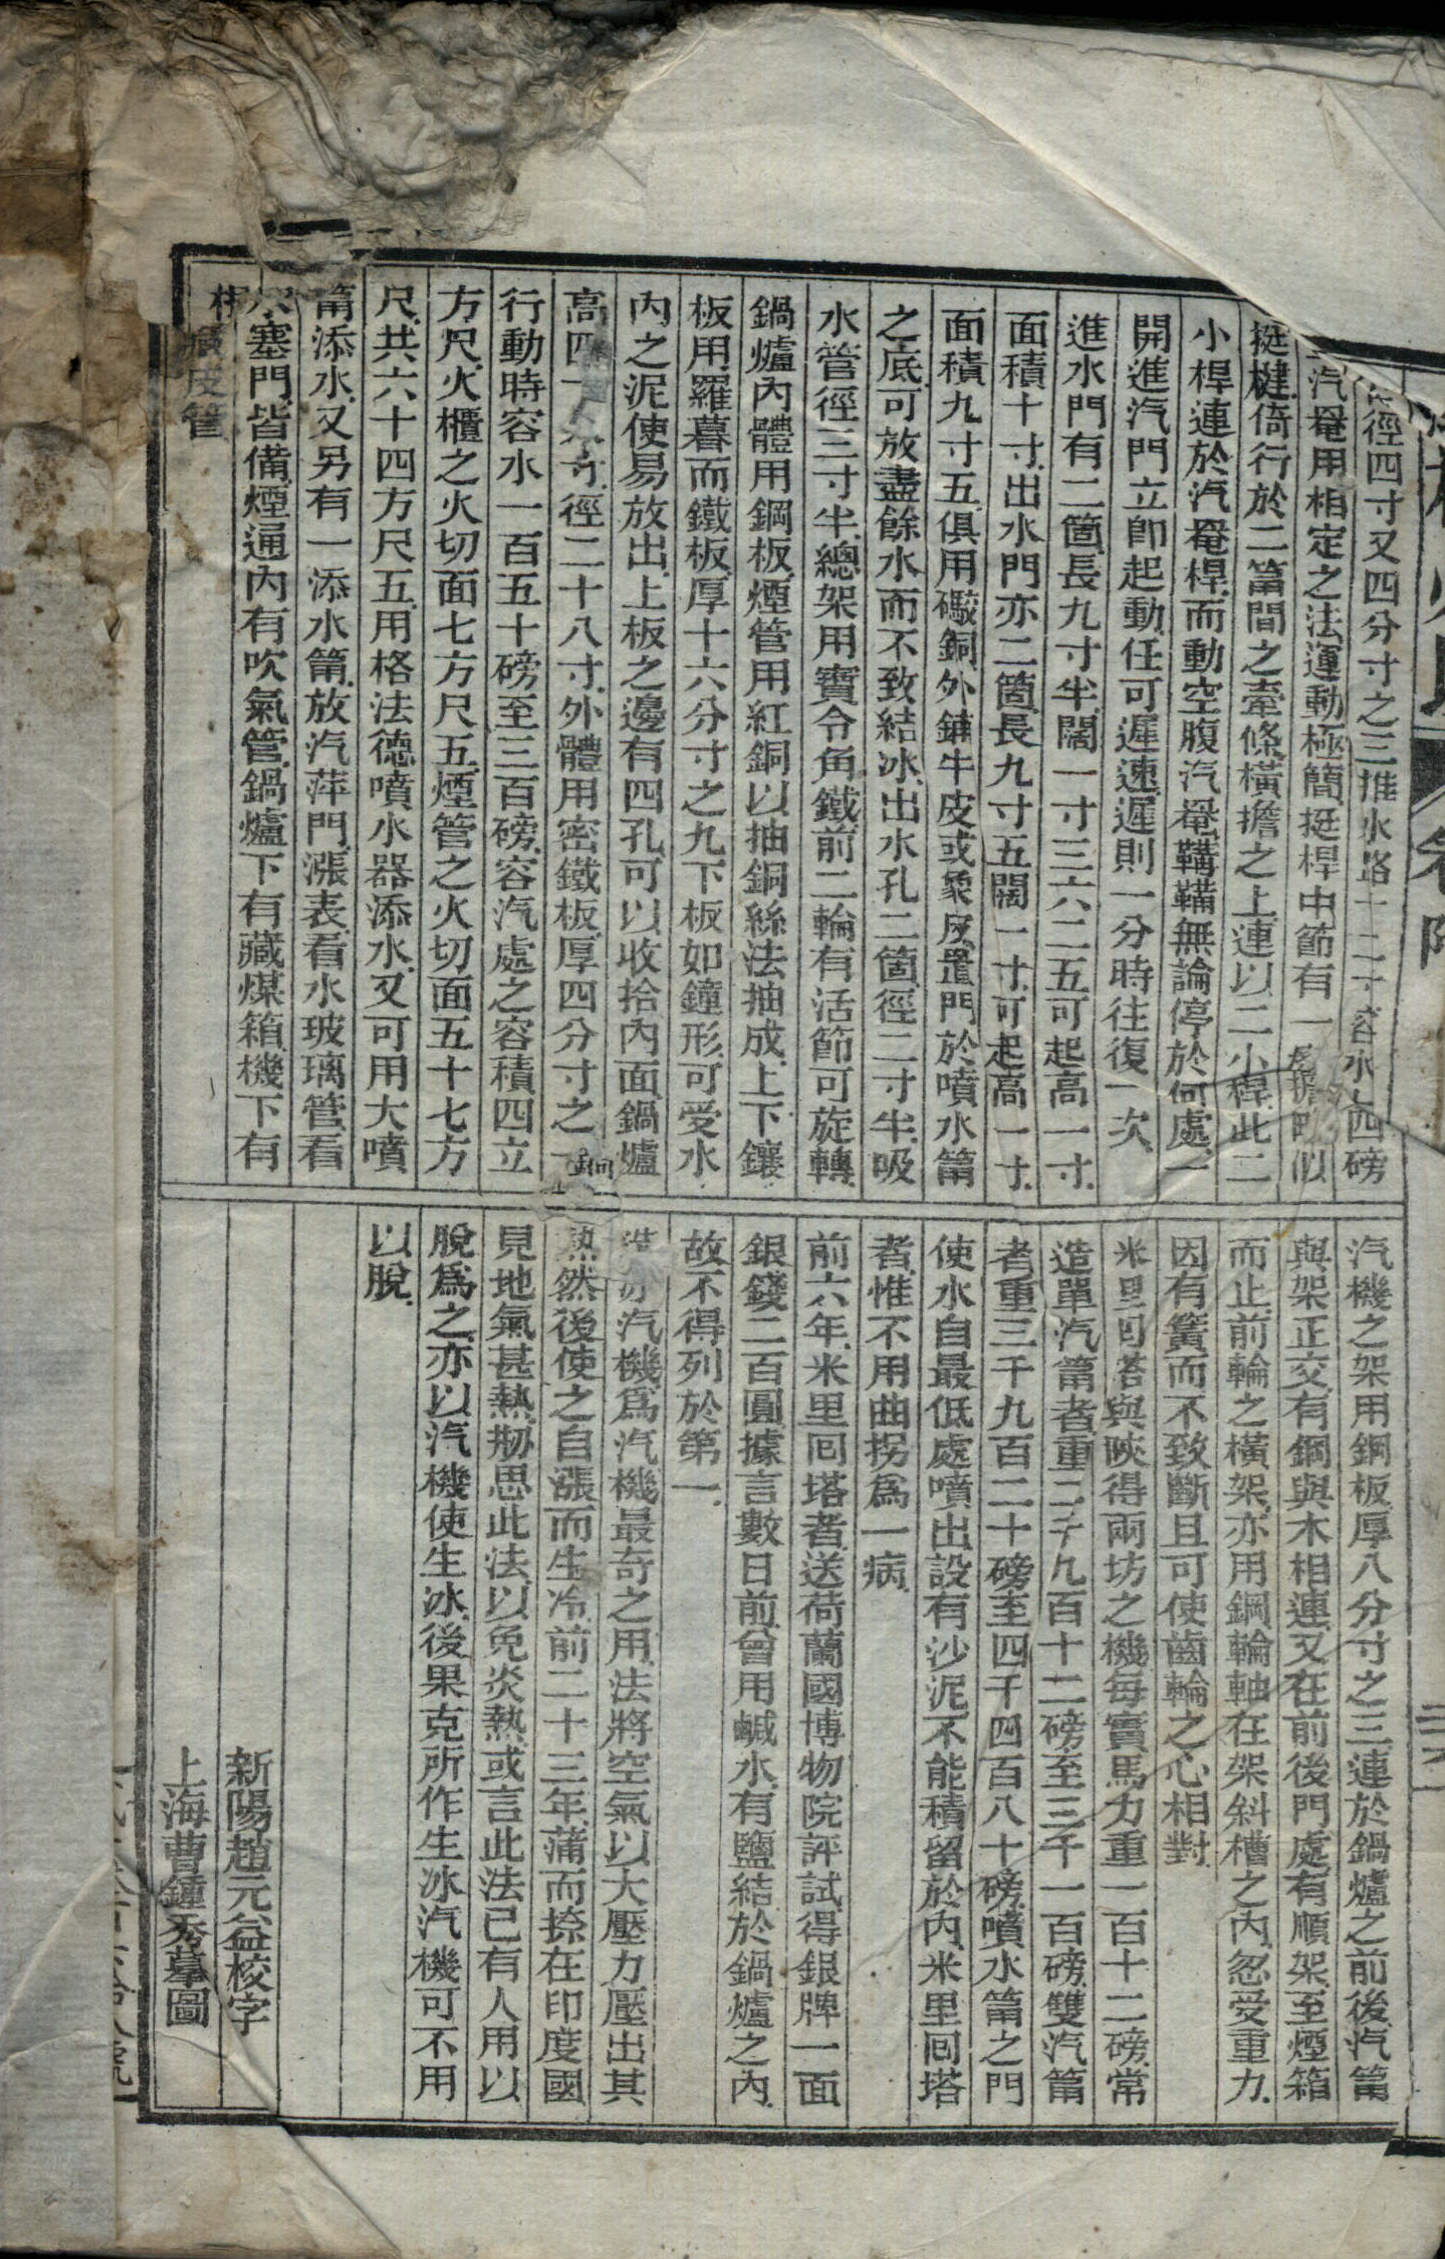 徑四寸又四分寸之三推水路十二寸容水四磅
汽罨用相定之法運動極簡挺桿中節有一
挺楗倚行於二筩間之牽條橫擔之上連以二小桿此二
小桿連於汽罨桿而動空腹汽罨鞲鞴無論停於何處一
開進汽門立卽起動任可遲速遲則一分時往復一次
進水門有二箇長九寸半闊一寸三六二五可起高一寸
面積十寸出水門亦二箇長九寸五闊一寸可起高一寸
面積九寸五俱用礮銅外鋪牛皮或象皮置門於噴水筩
之底可放盡餘水而不致結冰出水孔二箇徑二寸半吸
水管徑三寸半總架用寶令角鐵前二輪有活節可旋轉
鍋爐內體用鋼板煙管用紅銅以抽銅絲法抽成上下鑲
板用羅暮而鐵板厚十六分寸之九下板如鐘形可受水
內之泥使易放出上板之邊有四孔可以收拾內面鍋爐
高四十寸徑二十八寸外體用密鐵板厚四分寸之一
行動時容水一百五十磅至三百磅容汽處之容積四立
方尺火櫃之火切面七方尺五煙管之火切面五十七方
尺共六十四方尺五用格法德噴水器添水又可用大噴
筩添水又另有一添水筩放汽萍門漲表看水玻璃管看
水塞門皆備煙通內有吹氣管鍋爐下有藏煤箱機下有
櫃藏皮管
汽機之架用鋼板厚八分寸之三連於鍋爐之前後汽筩
與架正交有鋼與木相連又在前後門處有順架至煙箱
而止前輪之橫架亦用鋼輪軸在架斜槽之內忽受重力
因有簧而不致斷且可使齒輪之心相對
米里囘塔與陝得兩坊之機每實馬力重一百十二磅常
造單汽筩者重二千九百十二磅至三千一百磅雙汽筩
者重三千九百二十磅至四千四百八十磅噴水筩之門
使水自最低處噴出設有沙泥不能積留於內米里囘塔
者惟不用曲拐爲一病
前六年米里囘塔者送荷蘭國博物院評試得銀牌一面
銀錢二百圓據言數日前曾用鹹水有鹽結於鍋爐之內
故不得列於第一
造冰汽機爲汽機最奇之用法將空氣以大壓力壓出其
熱然後使之自漲而生冷前二十三年蒲而捺在印度國
見地氣甚熱剏思此法以免炎熱或言此法已有人用以
脫爲之亦以汽機使生冰後果克所作生冰汽機可不用
以脫
新陽趙元益校字
上海曹鍾秀摹圖